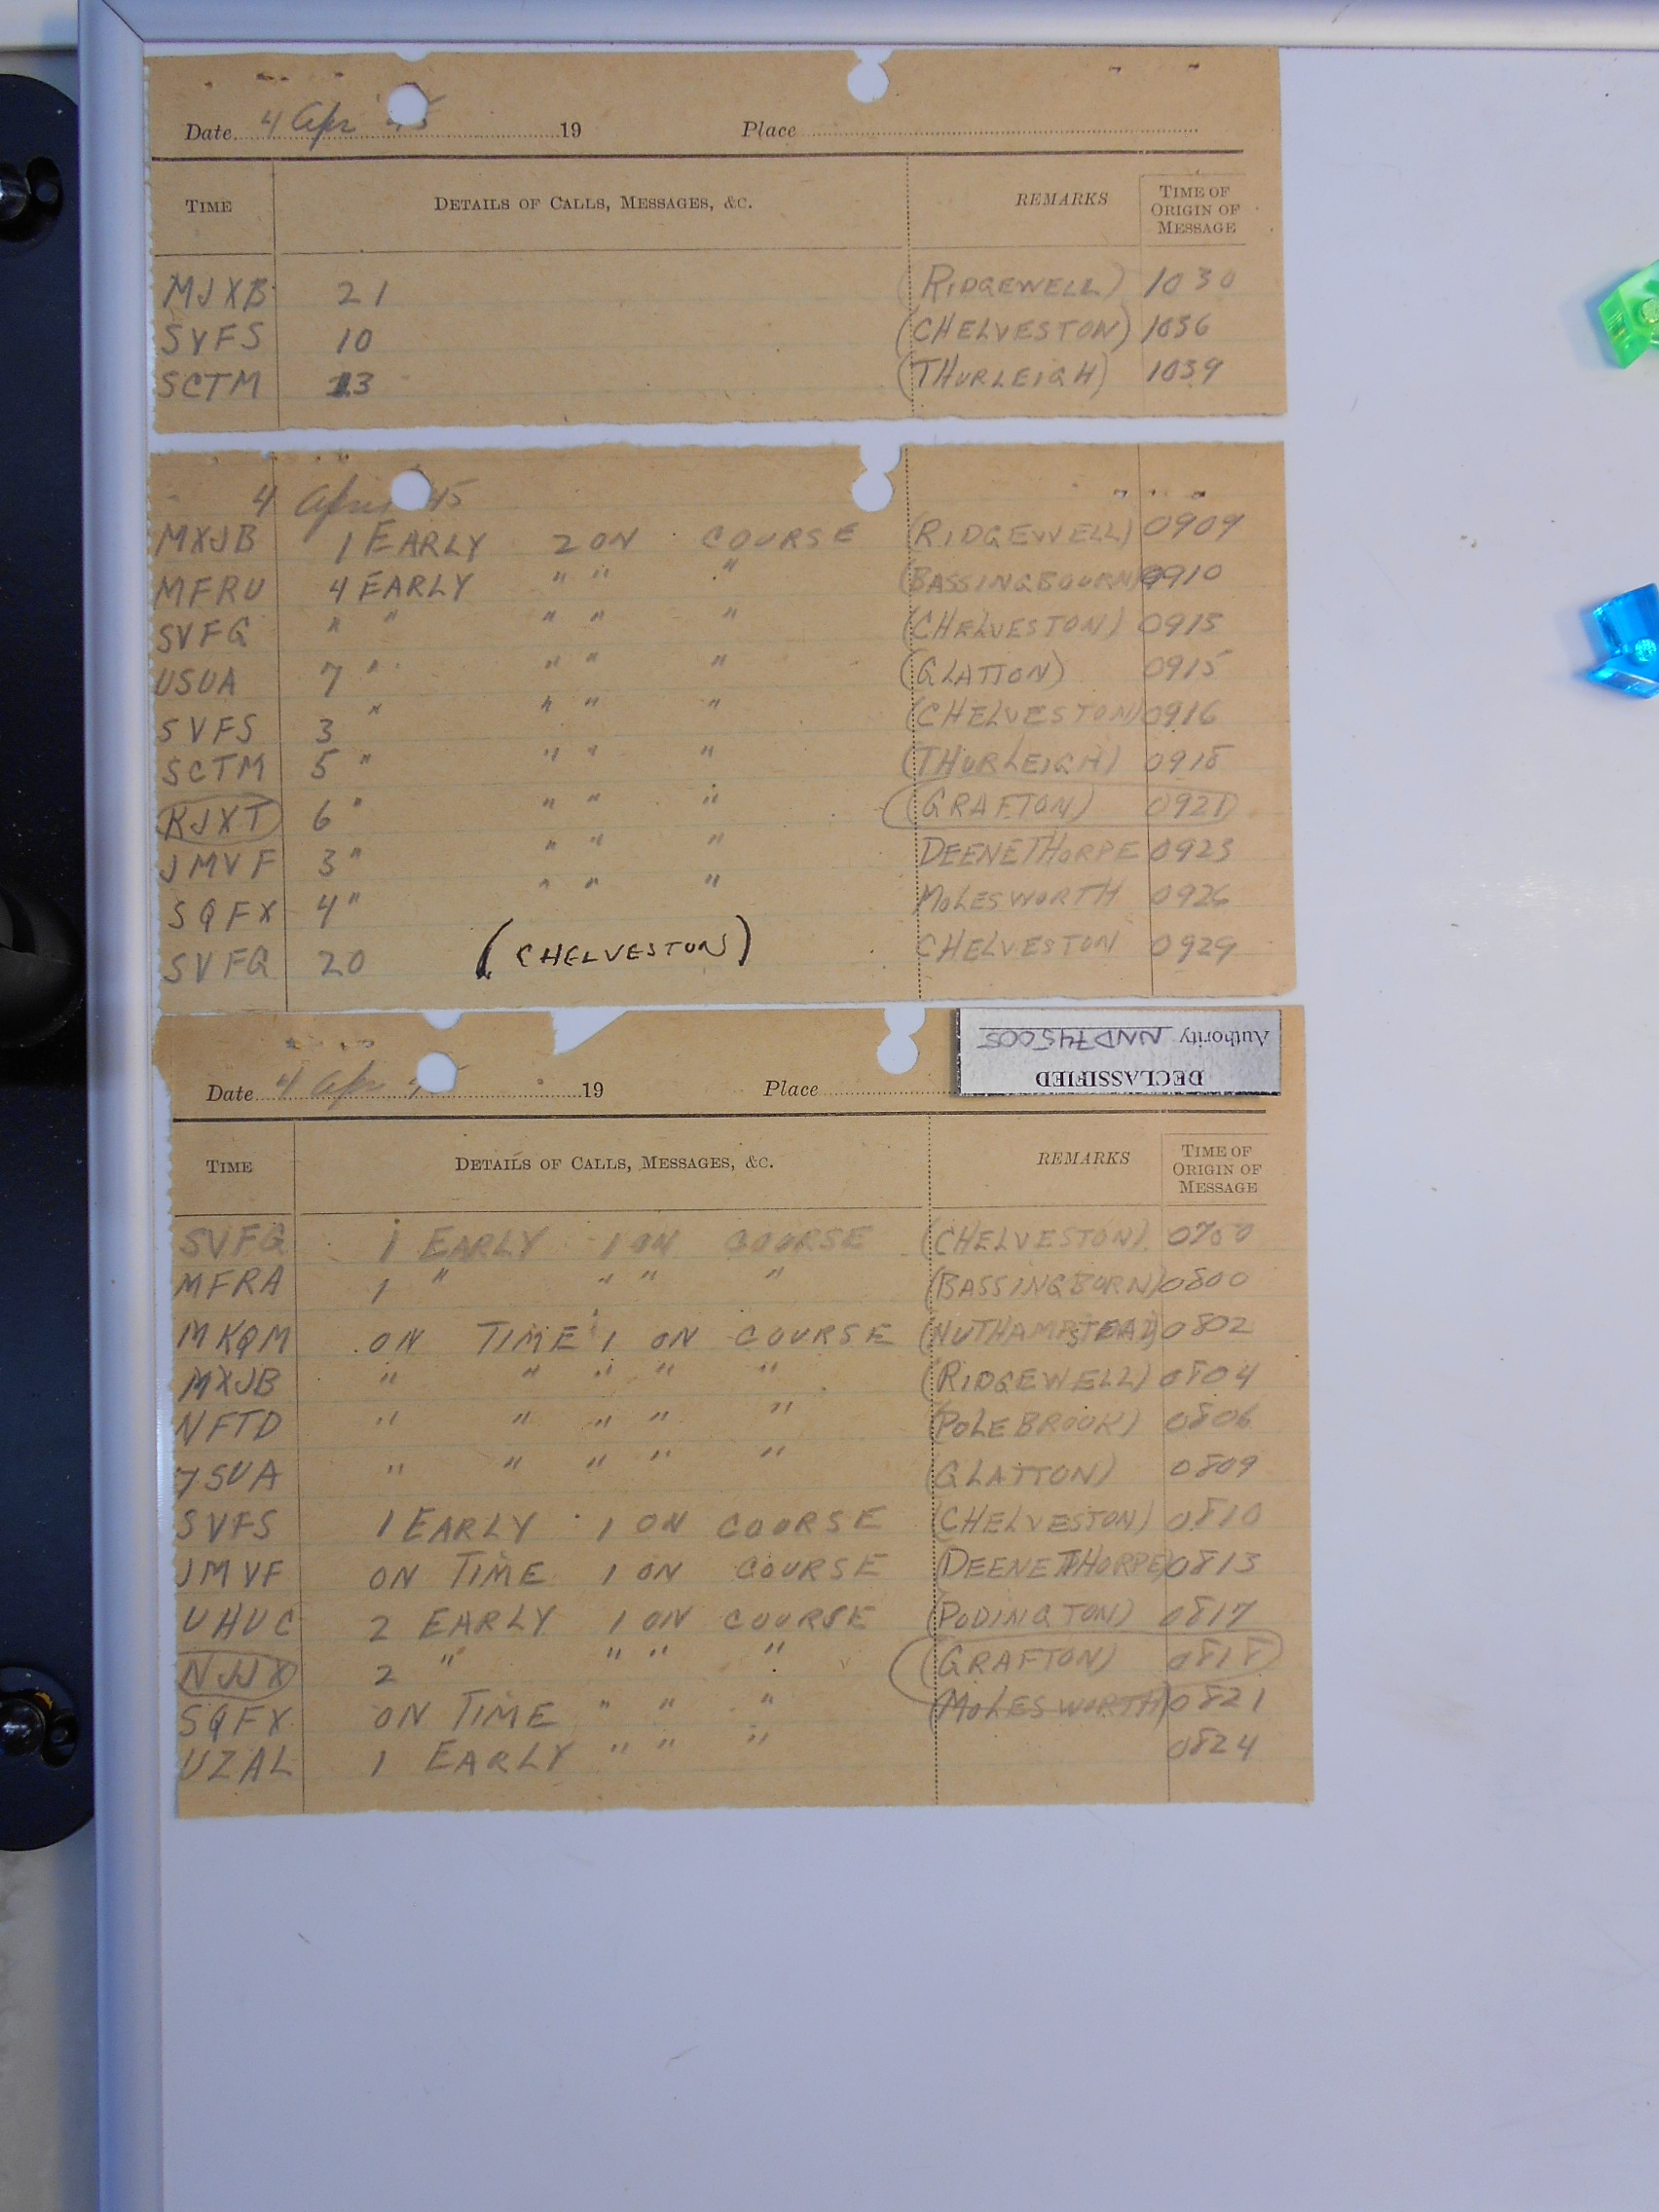 Date 4 Apr 45 19 Place
TIME DETAILS OF CALLS, MESSAGES, &C. REMARKS TIME OF ORIGIN OF MESSAGE
MJXB 21 (RIDGEWELL) 1030
SVFS 10 (CHELVESTON) 1036
SCTM 13 (THURLEIGH) 1039
4 April 45
MXJB 1 EARLY 2 ON COURSE (RIDGEWELL) 0909
MFRU 4 EARLY " " " (BASSINGBOURN) 0910
SVFG " " " " " (CHELVESTON) 0915
USUA 7 " " " " (GLATTON) 0915
SVFS 3 " " " " (CHELVESTON) 0916
SCTM 5 " " " " (THURLEIGH) 0918
RJXT 6 " " " " (GRAFTON) 0921
JMVF 3 " " " " DEENETHORPE 0923
SQFX 4 " " " " MOLESWORTH 0926
SVFG 20 (CHELVESTON) CHELVESTON 0929
DECLASSIFIED
Authority NND745005
Date 4 Apr 45 19 Place
TIME DETAILS OF CALLS, MESSAGES, &C. REMARKS TIME OF ORIGIN OF MESSAGE
SVFG 1 EARLY 1 ON COURSE (CHELVESTON)
MFRA 1 " " " " (BASSINGBORN) 0800
MKQM ON TIME 1 ON COURSE (NUTHAMPSTEAD) 0802
MXJB " " " " " (RIDGEWELL) 0804
NFTD " " " " " (POLEBROOK) 0806
7SUA " " " " " (GLATTON) 0809
SVFS 1 EARLY 1 ON COURSE (CHELVESTON) 0810
JMVF ON TIME 1 ON COURSE (DEENETHORPE) 0813
UHUC 2 EARLY 1 ON COURSE (PODINGTON) 0817
NJJX 2 " " " " (GRAFTON) 0818
SQFX ON TIME " " " (MOLESWORTH) 0821
UZAL 1 EARLY " " " 0824